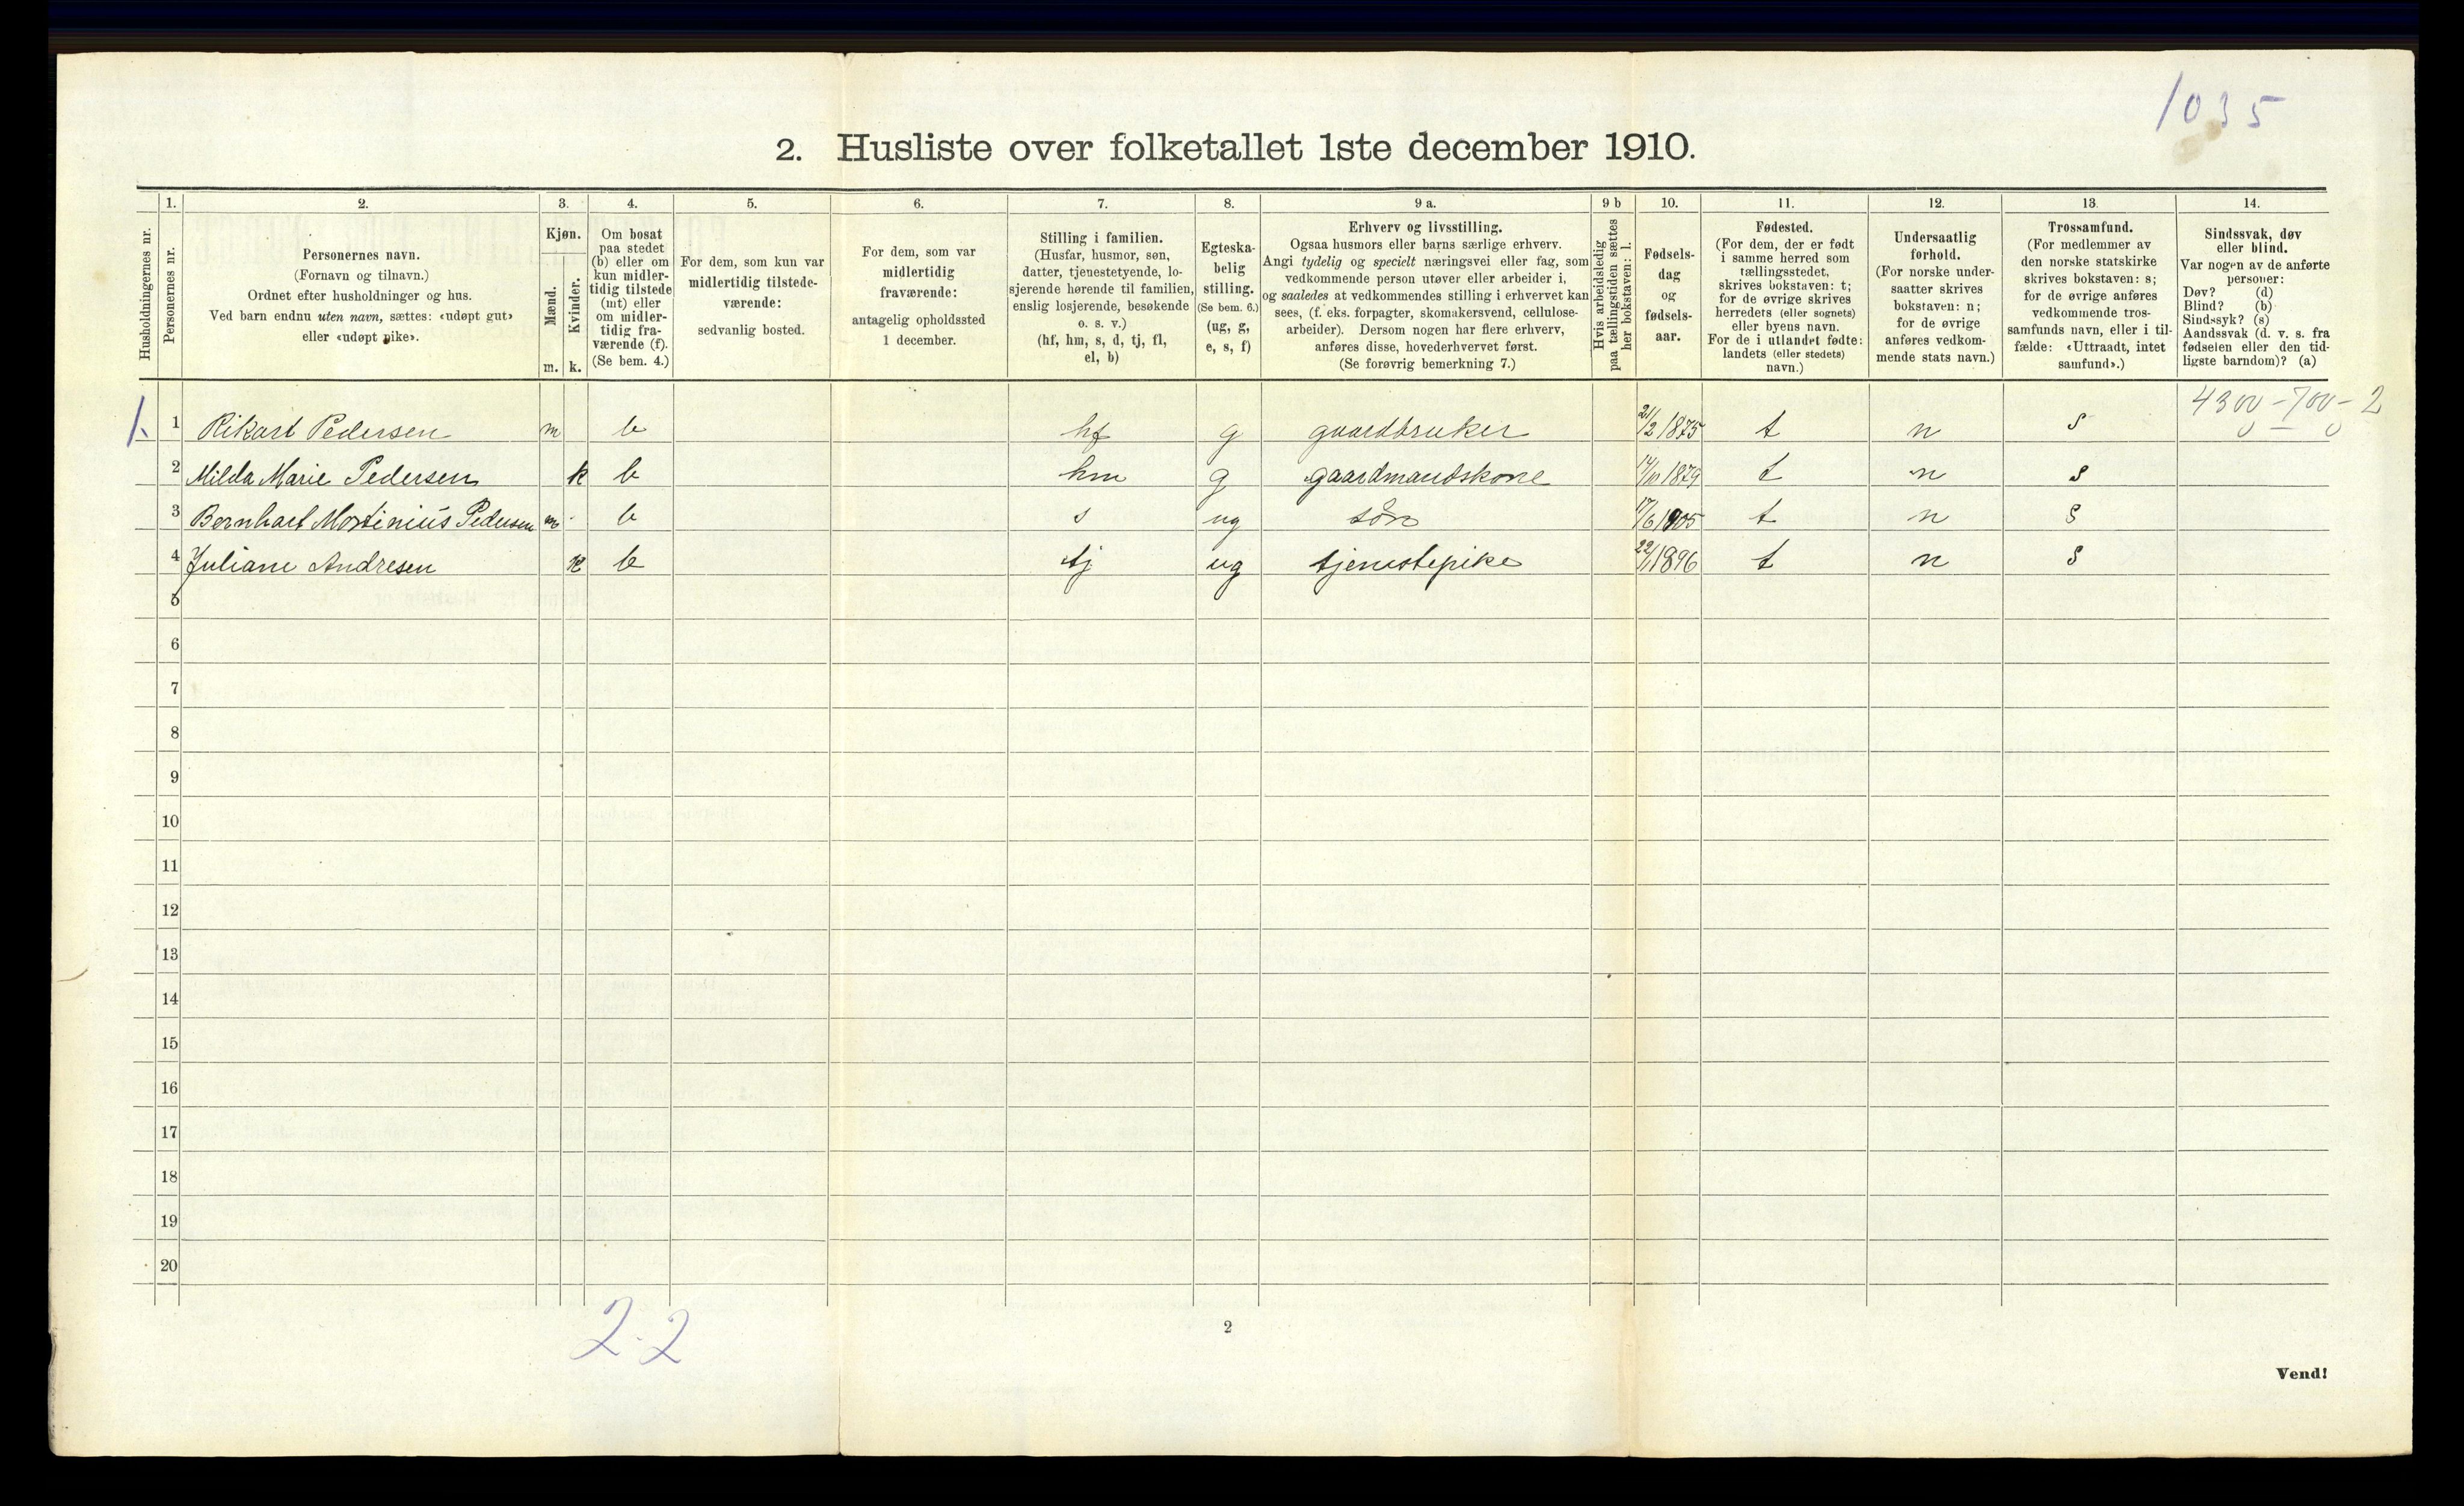 1035
2. Husliste over folketallet 1ste december 1910.
Husholdningernes nr.
1. Personernes nr.
2. Personernes navn.
(Fornavn og tilnavn.)
Ordnet efter husholdninger og hus.
Ved barn endnu uten navn, sættes: «udøpt gut»
eller «udøpt pike».
3. Kjøn.
Mænd. Kvinder.
m. k.
4. Om bosat
paa stedet
(b) eller om
kun midler-
tidig tilstede
(mt) eller
om midler-
tidig fra-
værende (f).
(Se bem. 4.)
5. For dem, som kun var
midlertidig tilstede-
værende:
sedvanlig bosted.
6. For dem, som var
midlertidig
fraværende:
antagelig opholdssted
1 december.
7. Stilling i familien.
(Husfar, husmor, søn,
datter, tjenestetyende, lo-
sjerende hørende til familien,
enslig losjerende, besøkende
o. s. v.)
(hf, hm, s, d, tj, fl,
el, b)
8. Egteska-
belig
stilling.
(Se bem. 6.)
(ug, g,
e, s, f)
9 a. Erhverv og livsstilling.
Ogsaa husmors eller barns særlige erhverv.
Angi tydelig og specielt næringsvei eller fag, som
vedkommende person utøver eller arbeider i,
og saaledes at vedkommendes stilling i erhvervet kan
sees, (f. eks. forpagter, skomakersvend, cellulose-
arbeider). Dersom nogen har flere erhverv,
anføres disse, hovederhvervet først.
(Se forøvrig bemerkning 7.)
9 b Hvis arbeidsledig
paa tællingstiden sættes
her bokstaven: l.
10. Fødsels-
dag
og
fødsels-
aar.
11. Fødested.
(For dem, der er født
i samme herred som
tællingsstedet,
skrives bokstaven: t;
for de øvrige skrives
herredets (eller sognets)
eller byens navn.
For de i utlandet fødte:
landets (eller stedets)
navn.)
12. Undersaatlig
forhold.
(For norske under-
saatter skrives
bokstaven: n;
for de øvrige
anføres vedkom-
mende stats navn.)
13. Trossamfund.
(For medlemmer av
den norske statskirke
skrives bokstaven: s;
for de øvrige anføres
vedkommende tros-
samfunds navn, eller i til-
fælde: «Uttraadt, intet
samfund».)
14. Sindssvak, døv
eller blind.
Var nogen av de anførte
personer:
Døv? (d)
Blind? (b)
Sindssyk? (s)
Aandssvak (d. v. s. fra
fødselen eller den tid-
ligste barndom)? (a)
4300 - 700 - 2
1. 1 Rikart Pedersen m b hf g gaardbruker 21/2 1875 t n s
2 Milda Marie Pedersen k b hm g gaardmandskone 1879 t n s
3 Bernhart Mortinius Pedersen m b s ug søn 17/6 1905 t n s
4 Juliane Andresen k b tj ug tjenestepike 22/1 1896 t n s
5
6
7
8
9
10
11
12
13
14
15
16
17
18
19
20
2-2
2
Vend!